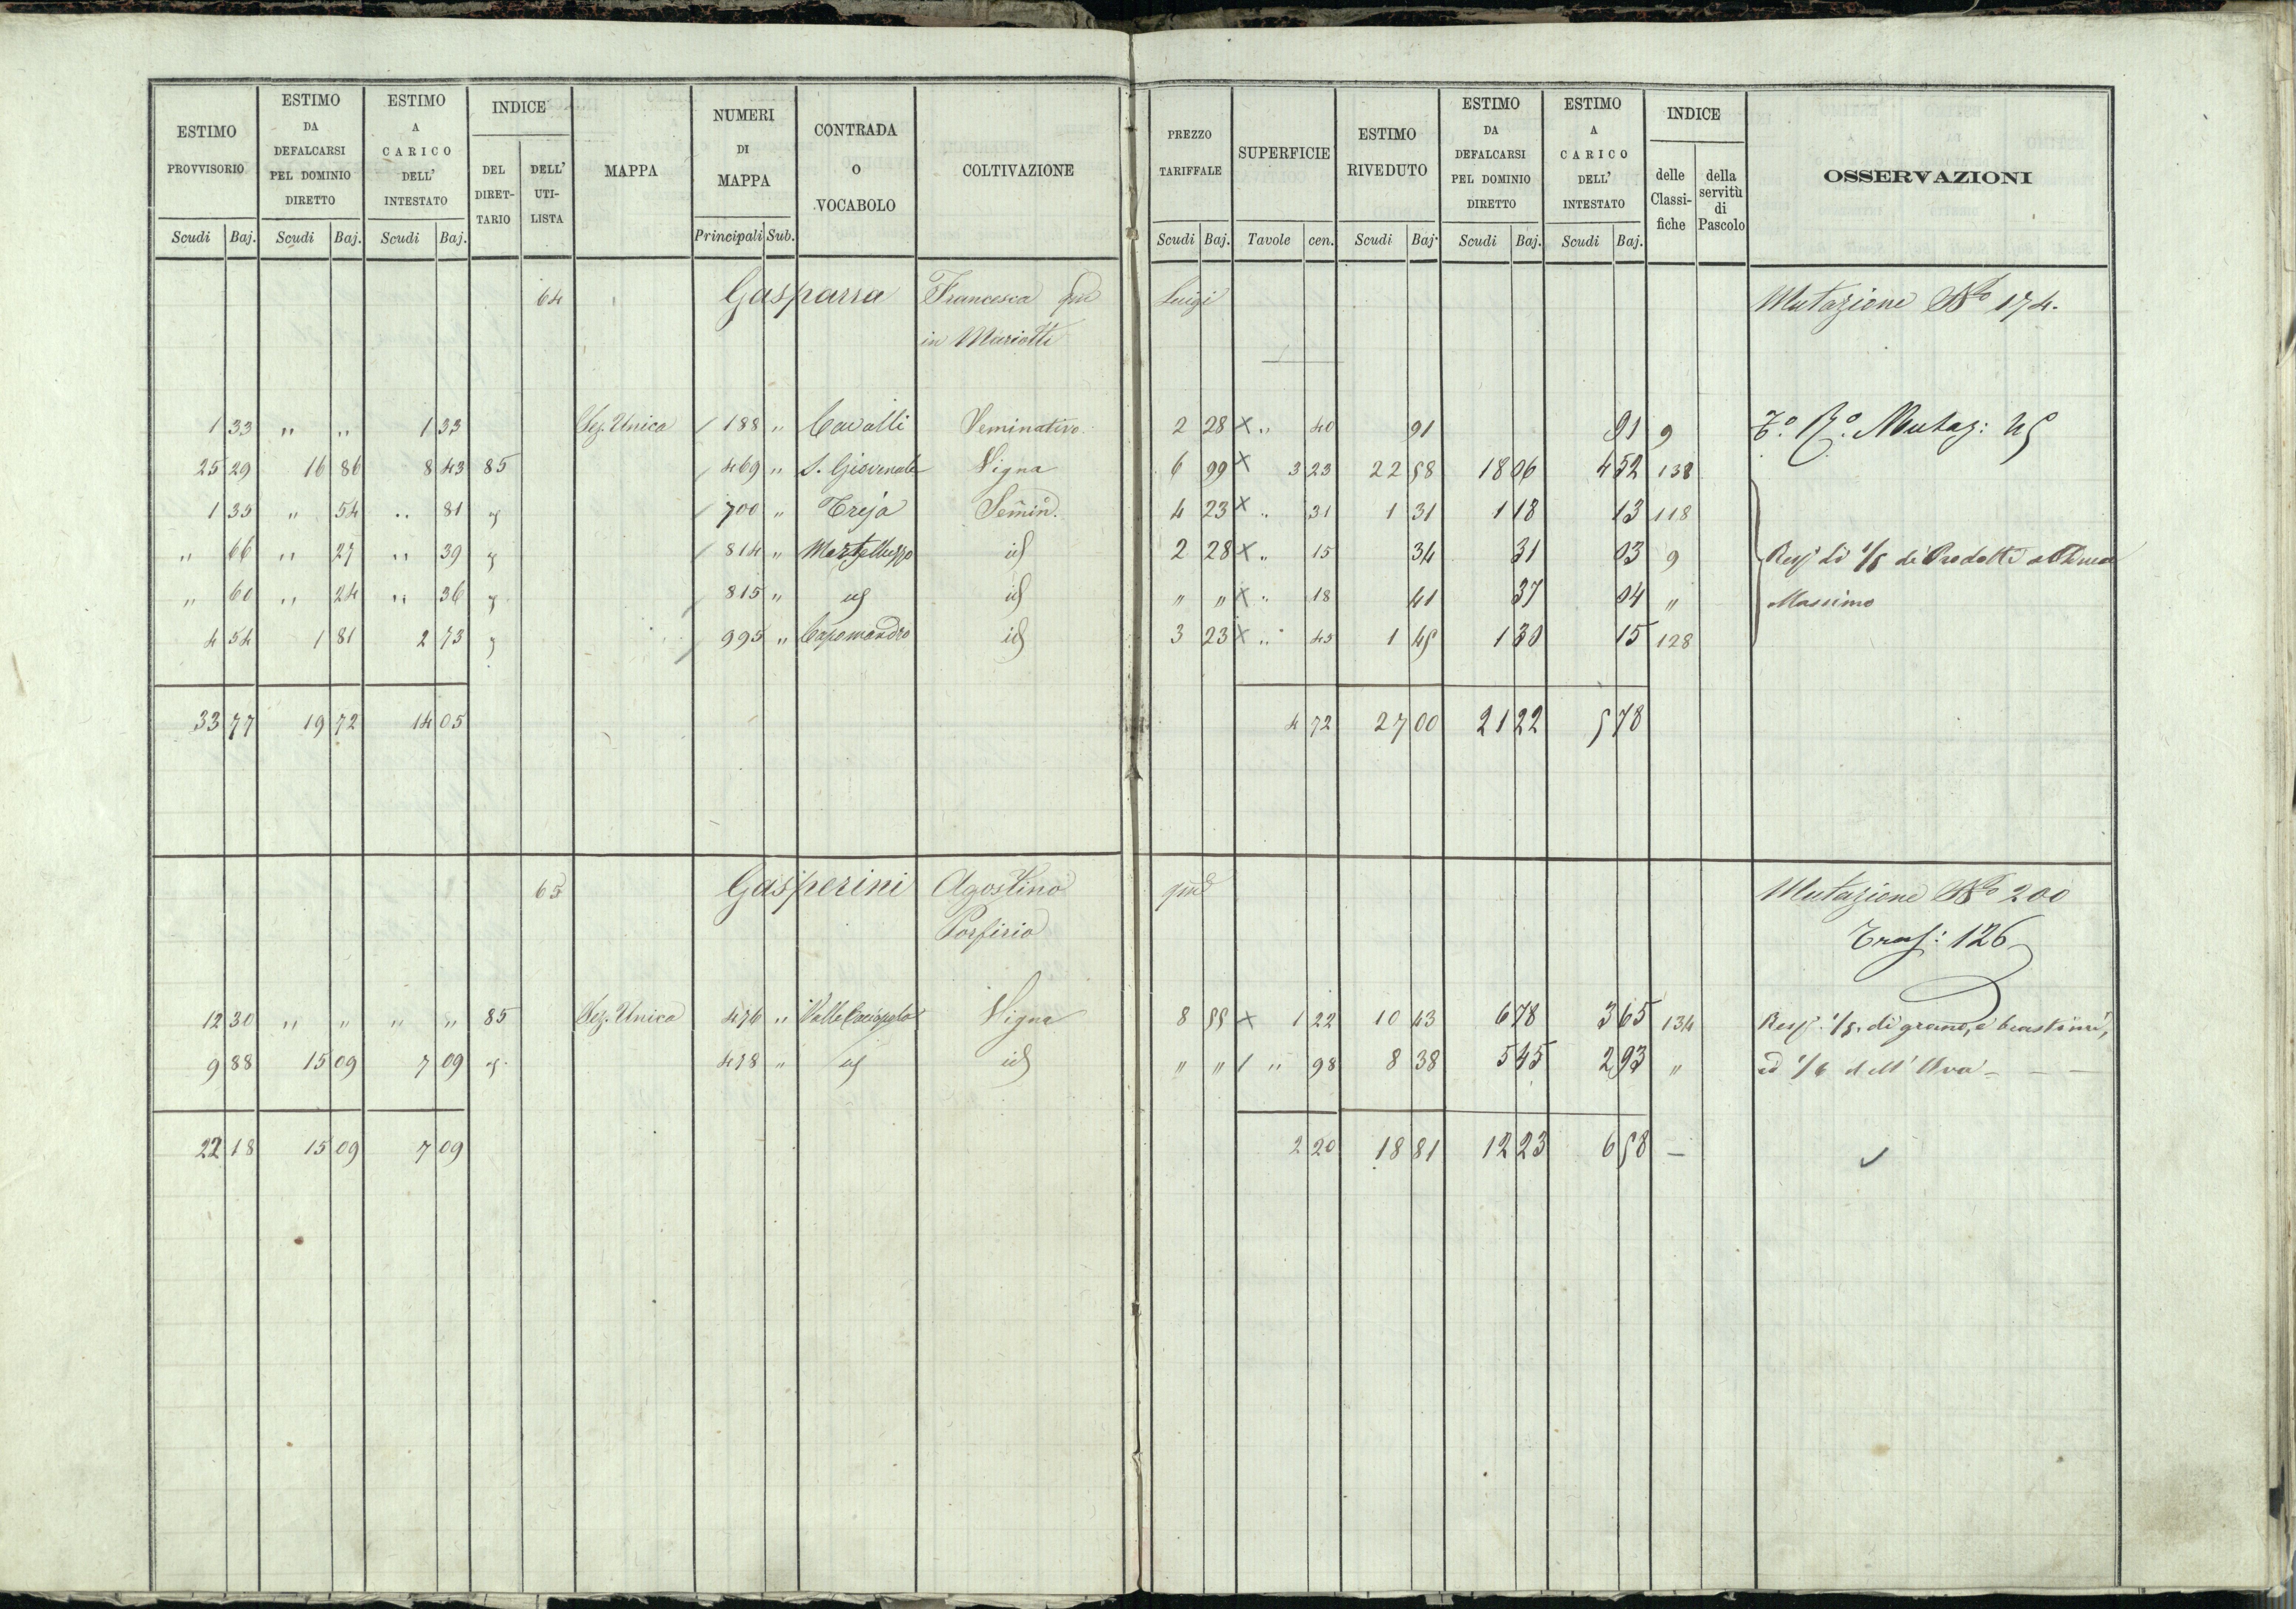 ESTIMO PROVVISORIO | ESTIMO DA DEFALCARSI PEL DOMINIO DIRETTO | ESTIMO A CARICO DELL' INTESTATO | INDICE DEL DIRETTARIO | DELL' UTILISTA | MAPPA | NUMERI DI MAPPA | CONTRADA O VOCABOLO | COLTIVAZIONE | PREZZO TARIFFALE | SUPERFICIE | ESTIMO RIVEDUTO | ESTIMO DA DEFALCARSI PEL DOMINIO DIRETTO | ESTIMO A CARICO DELL' INTESTATO | INDICE delle Classifiche | della servitù di Pascolo | OSSERVAZIONI
Scudi Baj. Scudi Baj. Scudi Baj. Principali Sub. Scudi Baj. Tavole cen. Scudi Baj. Scudi Baj. Scudi Baj.
64 Gasparra Francesca qm Luigi Mutazione No 174.
in Mariotti
1 33 " " 1 33 Sez. Unica 188 " Cavalli Seminativo 2 28 X " 40 91 91 9 Mutaz:
25 29 16 86 8 43 85 469 " S. Giovenale Vigna 6 99 X 3 23 22 58 18 06 4 52 138
1 35 " 54 " 81 " 700 " Treja Semin. 4 23 X " 31 1 31 1 18 13 118
" 66 " 27 " 39 " 814 " Martelluzzo id 2 28 X " 15 34 31 03 9 1/5 di Prodotti
" 60 " 24 " 36 " 815 " id id " " X " 18 41 37 04 " Massimo
4 54 1 81 2 73 " 995 " Capomandro id 3 23 X " 45 1 45 1 30 15 128
33 77 19 72 14 05 4 72 27 00 21 22 5 78
65 Gasperini Agostino qm Mutazione No 200
Porfirio Trasf: 126
12 30 " " " " 85 Sez. Unica 476 " Valle Vigna 8 55 X 1 22 10 43 6 78 3 65 134 1/5. di grano, e
9 88 15 09 7 09 " 478 " id id " " / " 98 8 38 5 45 2 93 " ed 1/6 dell' Uva
22 18 15 09 7 09 2 20 18 81 12 23 6 58 —